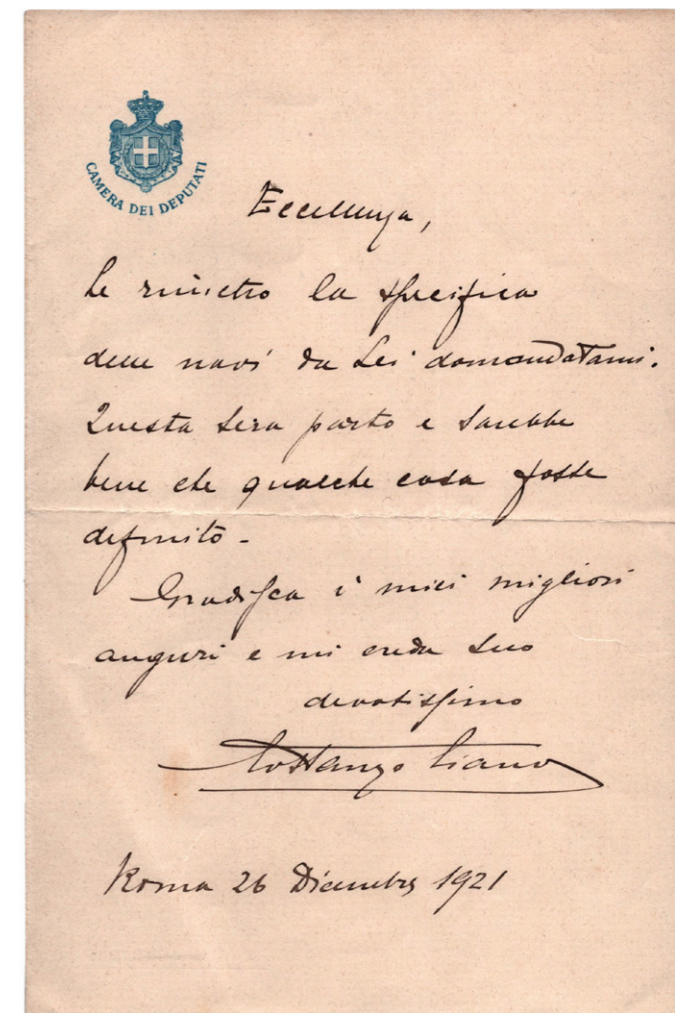 CAMERA DEI DEPUTATI
Eccellenza,
Le rimetto la specifica
delle navi da Lei domandatami.
Questa sera parto e sarebbe
bene che qualche cosa fosse
definito -
Gradisca i miei migliori
auguri e mi creda suo
devotissimo
Costanzo Ciano
Roma 26 Dicembre 1921